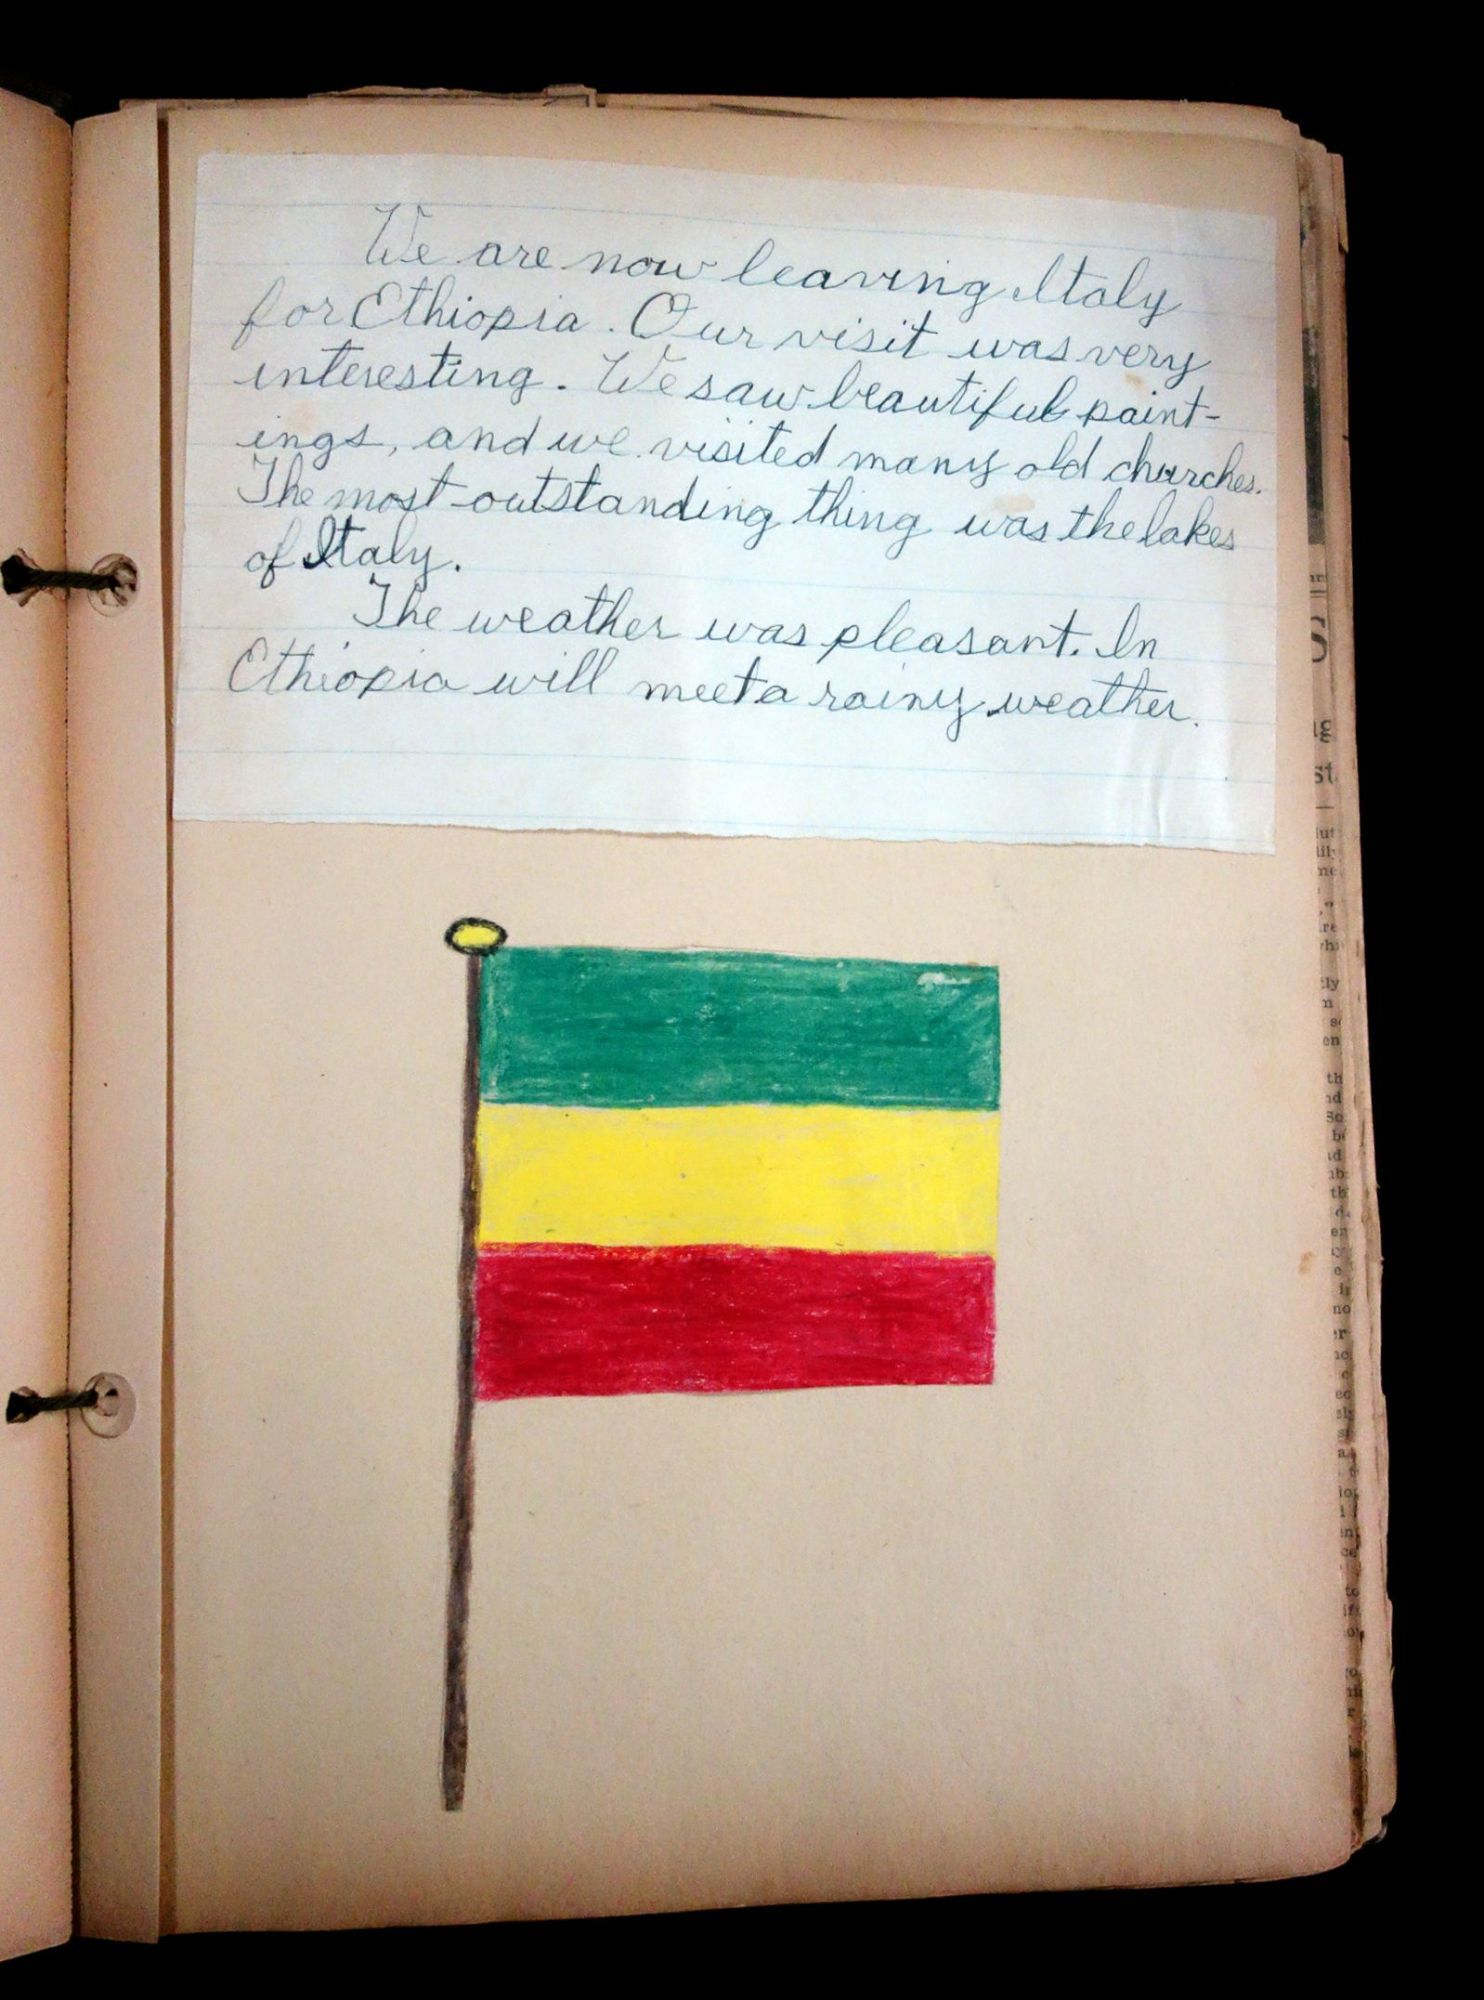 We are now leaving Italy
for Ethiopia. Our visit was very
interesting. We saw beautiful paint-
ings, and we visited many old churches.
The most outstanding thing was the lakes
of Italy.
The weather was pleasant. In
Ethiopia will meet a rainy weather.